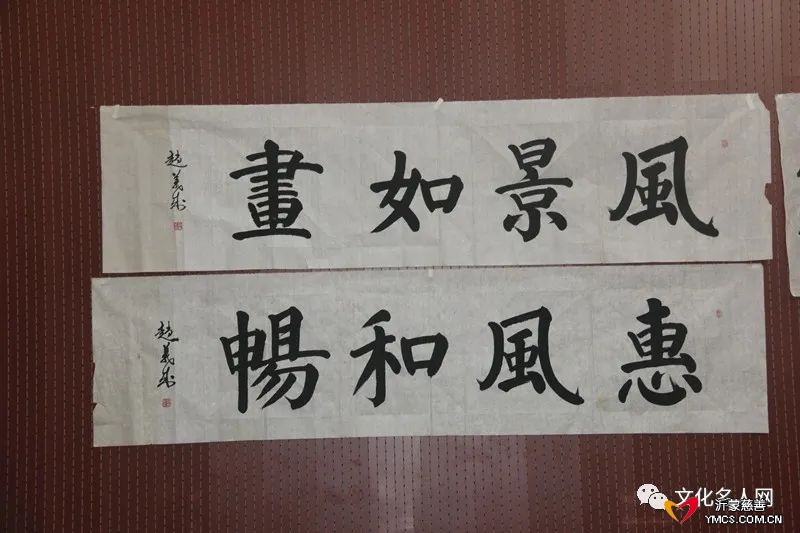 風景如畫
趙義成
惠風和暢
趙義成
文化名人网
沂蒙慈善
YMCS.COM.CN